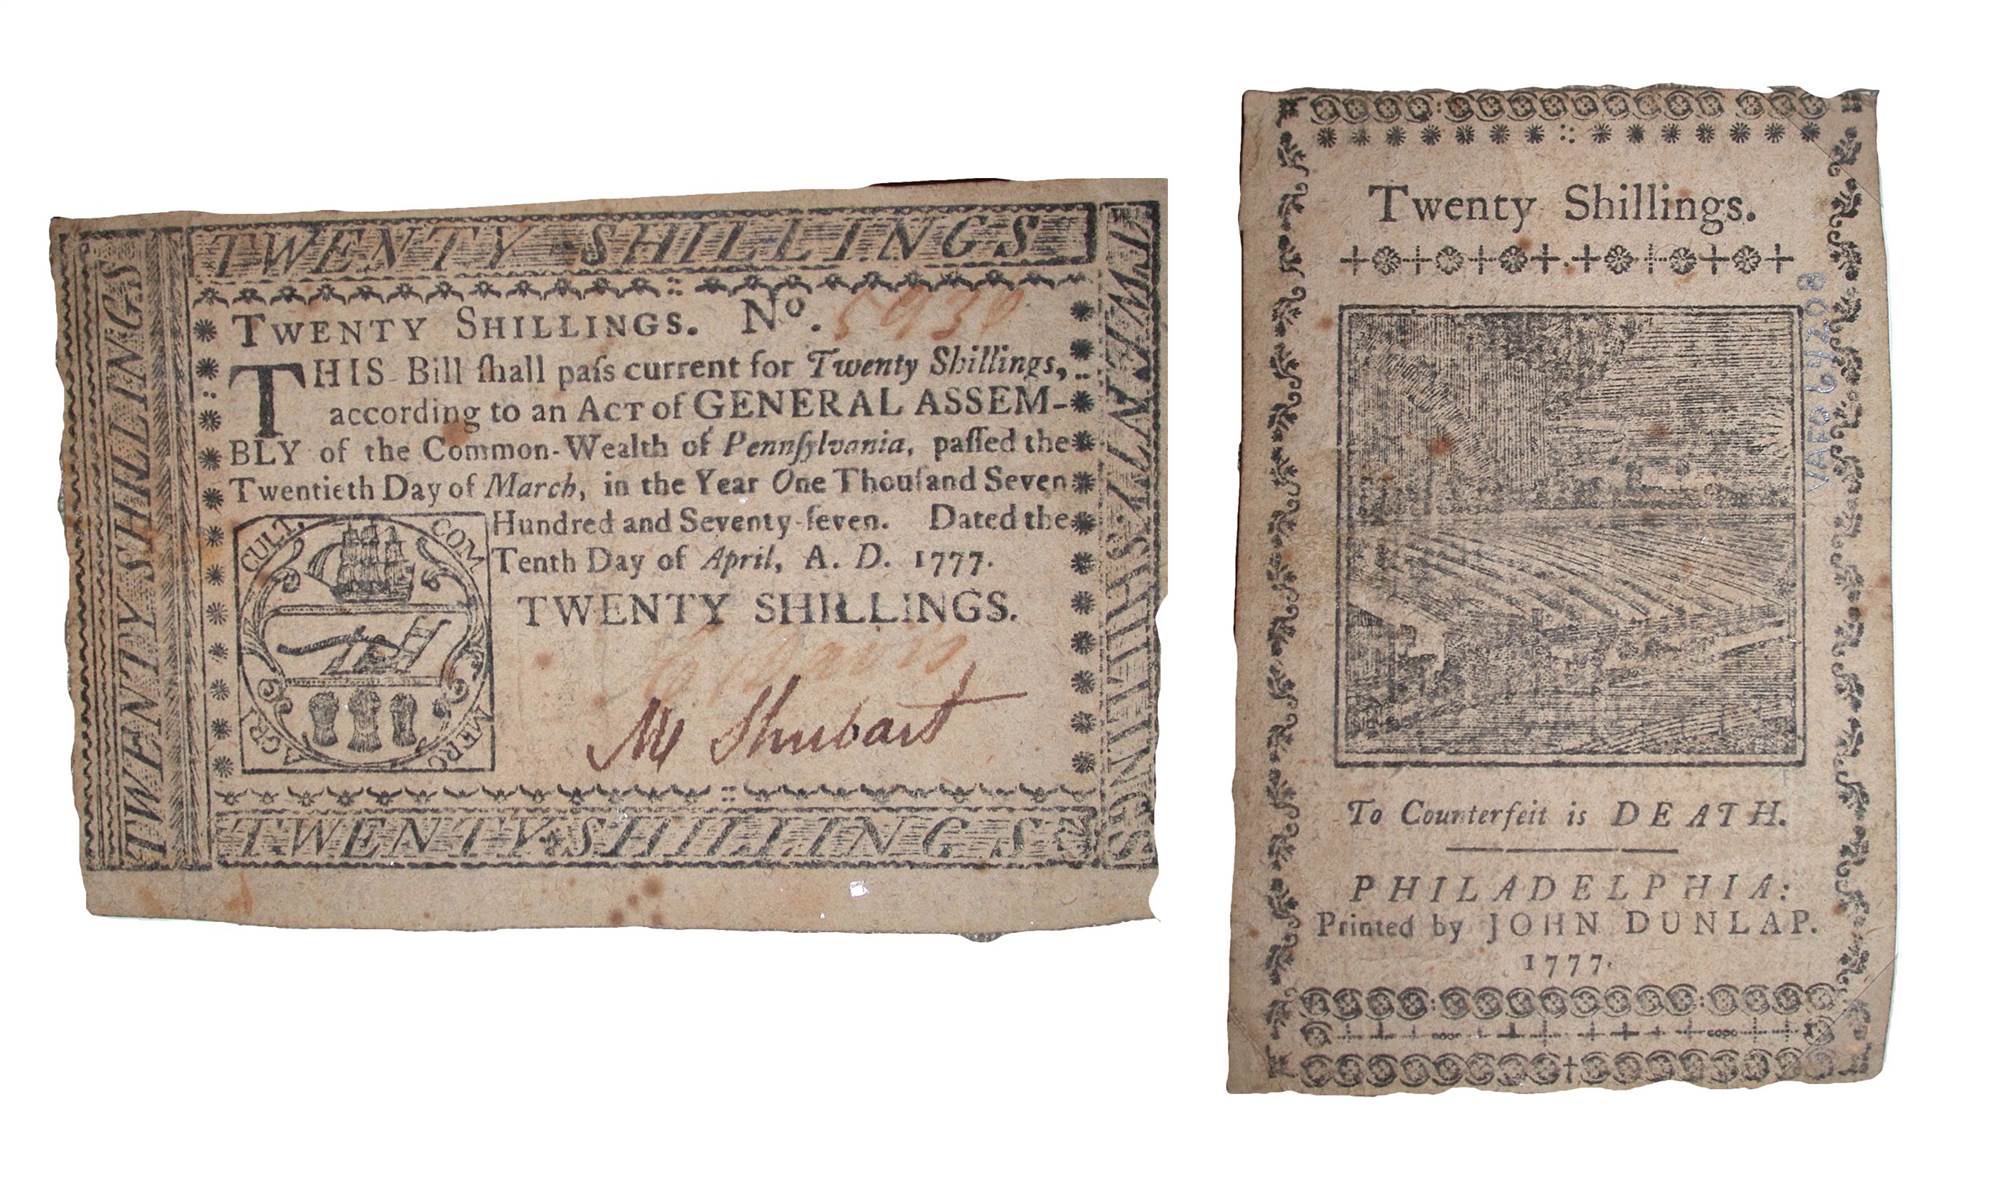 TWENTY SHILLINGS
TWENTY SHILLINGS
TWENTY SHILLINGS. No. 5930
THIS Bill ſhall paſs current for Twenty Shillings,
according to an ACT of GENERAL ASSEM-
BLY of the Common-Wealth of Pennſylvania, paſſed the
Twentieth Day of March, in the Year One Thouſand Seven
Hundred and Seventy-ſeven. Dated the
Tenth Day of April, A. D. 1777.
TWENTY SHILLINGS.
CULT. COM
AGR.
M Shubart
TWENTY SHILLINGS
TWENTY SHILLINGS
Twenty Shillings.
To Counterfeit is DEATH.
PHILADELPHIA:
Printed by JOHN DUNLAP.
1777.